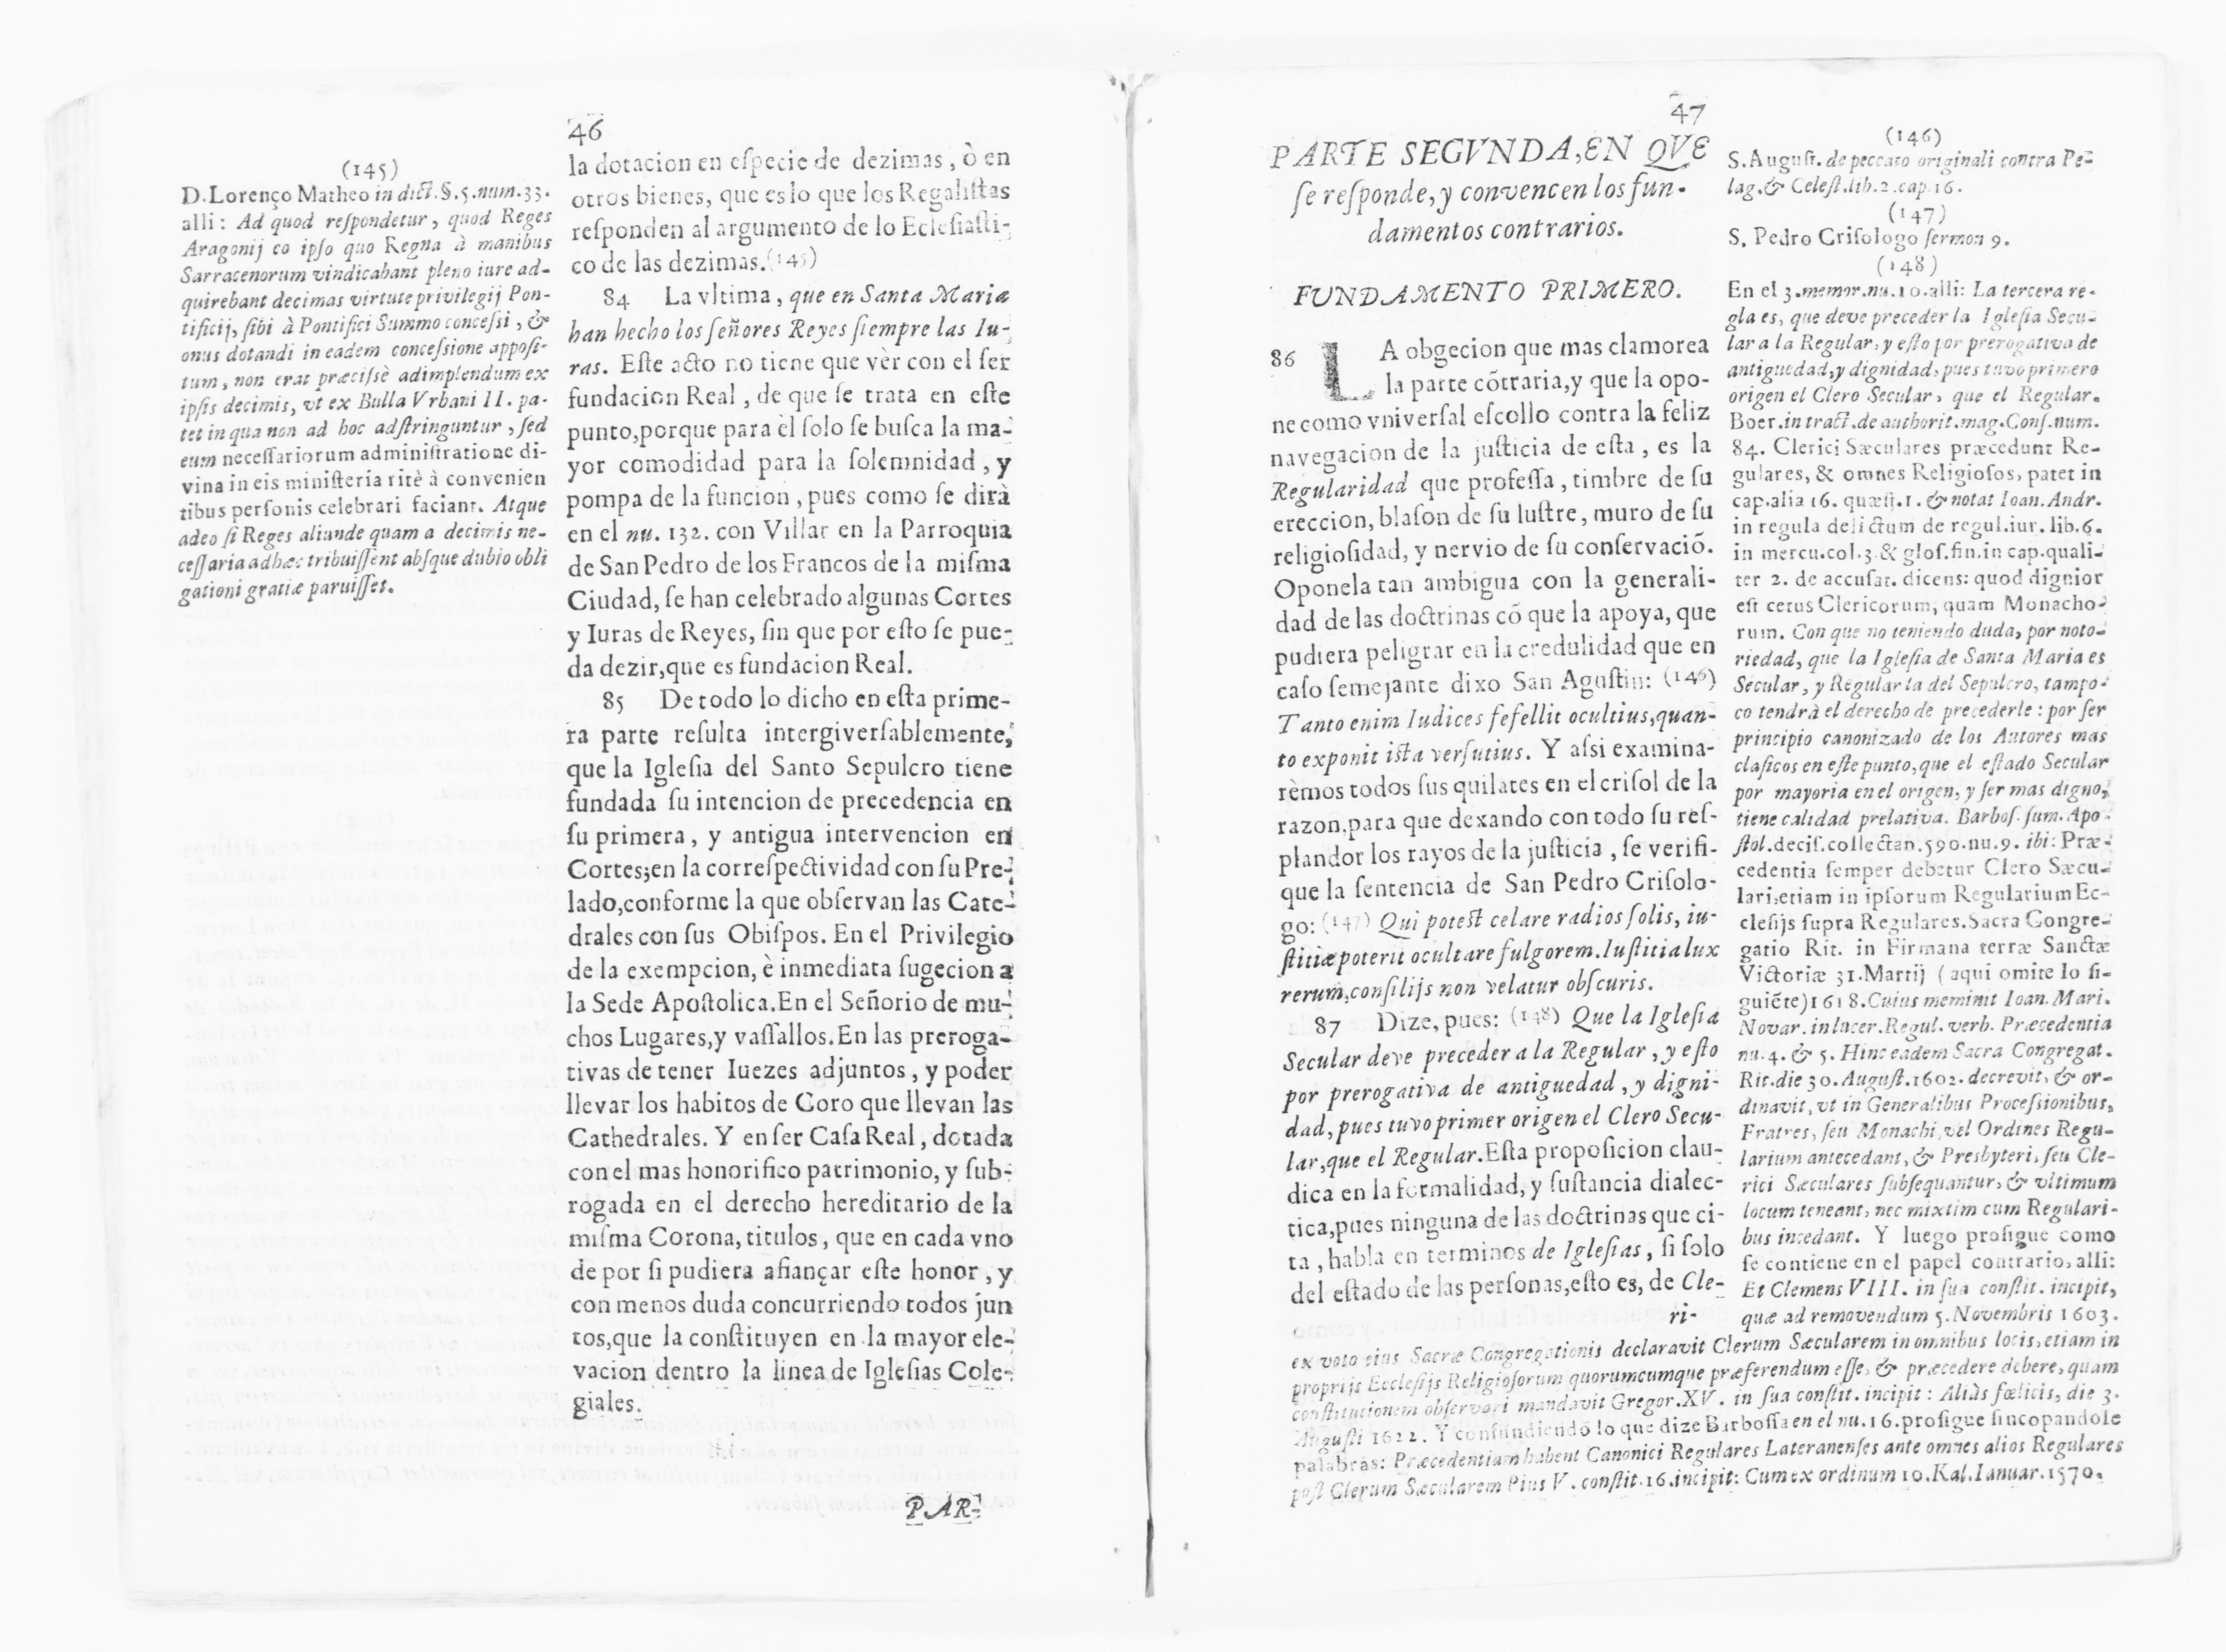 46
(145)
D.Lorenço Matheo in dict.§.5.num.33.
alli: Ad quod reſpondetur, quod Reges
Aragonij eo ipſo quo Regna à manibus
Sarracenorum vindicabant pleno iure ad-
quirebant decimas virtute privilegij Pon-
tificij, ſibi à Pontifici Summo conceſsi, &
onus dotandi in eadem conceſsione appoſi-
tum, non erat præciſsè adimplendum ex
ipſis decimis, vt ex Bulla Vrbani II. pa-
tet in qua non ad hoc adſtringuntur, ſed
eum neceſſariorum adminiſtratione di-
vina in eis miniſteria ritè à convenien
tibus perſonis celebrari faciant. Atque
adeo ſi Reges aliunde quam a decimis ne-
ceſſaria adhæc tribuiſſent abſque dubio obli
gationi gratiæ paruiſſet.
la dotacion en eſpecie de dezimas, ò en
otros bienes, que es lo que los Regaliſtas
reſponden al argumento de lo Ecleſiaſti-
co de las dezimas.(145)
84 La vltima, que en Santa Maria
han hecho los ſeñores Reyes ſiempre las Iu-
ras. Eſte acto no tiene que vèr con el ſer
fundacion Real, de que ſe trata en eſte
punto,porque para èl ſolo ſe buſca la ma-
yor comodidad para la ſolemnidad, y
pompa de la funcion, pues como ſe dirà
en el nu. 132. con Villar en la Parroquia
de San Pedro de los Francos de la miſma
Ciudad, ſe han celebrado algunas Cortes
y Iuras de Reyes, ſin que por eſto ſe pue-
da dezir,que es fundacion Real.
85 De todo lo dicho en eſta prime-
ra parte reſulta intergiverſablemente,
que la Igleſia del Santo Sepulcro tiene
fundada ſu intencion de precedencia en
ſu primera, y antigua intervencion en
Cortes;en la correſpectividad con ſu Pre-
lado,conforme la que obſervan las Cate-
drales con ſus Obiſpos. En el Privilegio
de la exempcion, è inmediata ſugecion a
la Sede Apoſtolica.En el Señorio de mu-
chos Lugares,y vaſſallos.En las preroga-
tivas de tener Iuezes adjuntos, y poder
llevar los habitos de Coro que llevan las
Cathedrales. Y en ſer Caſa Real, dotada
con el mas honorifico patrimonio, y ſub-
rogada en el derecho hereditario de la
miſma Corona, titulos, que en cada vno
de por ſi pudiera afiançar eſte honor, y
con menos duda concurriendo todos jun
tos,que la conſtituyen en la mayor ele-
vacion dentro la linea de Igleſias Cole-
giales.
PAR-
47
PARTE SEGVNDA,EN QVE
ſe reſponde, y convencen los fun-
damentos contrarios.
FUNDAMENTO PRIMERO.
86 LA obgecion que mas clamorea
la parte cõtraria,y que la opo-
ne como vniverſal eſcollo contra la feliz
navegacion de la juſticia de eſta, es la
Regularidad que profeſſa, timbre de ſu
ereccion, blaſon de ſu luſtre, muro de ſu
religioſidad, y nervio de ſu conſervaciõ.
Oponela tan ambigua con la generali-
dad de las doctrinas cõ que la apoya, que
pudiera peligrar en la credulidad que en
caſo ſemejante dixo San Aguſtin: (146)
Tanto enim Iudices fefellit ocultius,quan-
to exponit iſta verſutius. Y aſsi examina-
rèmos todos ſus quilates en el criſol de la
razon,para que dexando con todo ſu reſ-
plandor los rayos de la juſticia, ſe verifi-
que la ſentencia de San Pedro Criſolo-
go: (147) Qui poteſt celare radios ſolis, iu-
ſtitiæ poterit ocultare fulgorem.Iuſtitia lux
rerum,conſilijs non velatur obſcuris.
87 Dize, pues: (148) Que la Igleſia
Secular deve preceder a la Regular, y eſto
por prerogativa de antiguedad, y digni-
dad, pues tuvo primer origen el Clero Secu-
lar,que el Regular.Eſta propoſicion clau-
dica en la formalidad, y ſuſtancia dialec-
tica,pues ninguna de las doctrinas que ci-
ta, habla en terminos de Igleſias, ſi ſolo
del eſtado de las perſonas,eſto es, de Cle-
ri-
(146)
S.Auguſt. de peccato originali contra Pe-
lag.& Celeſt.lib.2.cap.16.
(147)
S. Pedro Criſologo ſermon 9.
(148)
En el 3.memor.nu.10.alli: La tercera re-
gla es, que deve preceder la Igleſia Secu-
lar a la Regular, y eſto por prerogativa de
antiguedad,y dignidad, pues tuvo primero
origen el Clero Secular, que el Regular.
Boer.in tract.de authorit.mag.Conſ.num.
84. Clerici Sæculares præcedunt Re-
gulares, & omnes Religioſos, patet in
cap.alia 16. quæſt.1. & notat Ioan.Andr.
in regula delictum de regul.iur. lib.6.
in mercu.col.3.& gloſ.fin.in cap.quali-
ter 2. de accuſat. dicens: quod dignior
eſt cetus Clericorum, quam Monacho-
rum. Con que no teniendo duda, por noto-
riedad, que la Igleſia de Santa Maria es
Secular, y Regular la del Sepulcro, tampo-
co tendrà el derecho de precederle : por ſer
principio canonizado de los Autores mas
claſicos en eſte punto,que el eſtado Secular
por mayoria en el origen, y ſer mas digno,
tiene calidad prelativa. Barboſ. ſum. Apo-
ſtol.deciſ.collectan.590.nu.9. ibi: Præ-
cedentia ſemper debetur Clero Sæcu-
lari,etiam in ipſorum Regularium Ec-
cleſijs ſupra Regulares.Sacra Congre-
gatio Rit. in Firmana terræ Sanctæ
Victoriæ 31.Martij (aqui omite lo ſi-
guiẽte)1618.Cuius meminit Ioan. Mari.
Novar. in lucer. Regul. verb. Præcedentia
nu.4. & 5. Hinc eadem Sacra Congregat.
Rit.die 30. Auguſt.1602. decrevit, & or-
dinavit, vt in Generalibus Proceſsionibus,
Fratres, ſeu Monachi vel Ordines Regu-
larium antecedant, & Presbyteri, ſeu Cle-
rici Sæculares ſubſequantur, & vltimum
locum teneant, nec mixtim cum Regulari-
bus incedant. Y luego proſigue como
ſe contiene en el papel contrario, alli:
Et Clemens VIII. in ſua conſtit. incipit,
quæ ad removendum 5.Novembris 1603.
ex voto eius Sacræ Congregationis declaravit Clerum Sæcularem in omnibus locis,etiam in
proprijs Eccleſijs Religioſorum quorumcumque præferendum eſſe, & præcedere debere, quam
conſtitutionem obſervari mandavit Gregor.XV. in ſua conſtit. incipit : Aliàs fœlicis, die 3.
Auguſti 1622. Y confundiendo lo que dize Barboſſa en el nu.16.proſigue ſincopandole
palabras: Præcedentiam habent Canonici Regulares Lateranenſes ante omnes alios Regulares
poſt Clerum Sæcularem Pius V. conſtit.16.incipit: Cum ex ordinum 10.Kal.Ianuar.1570.